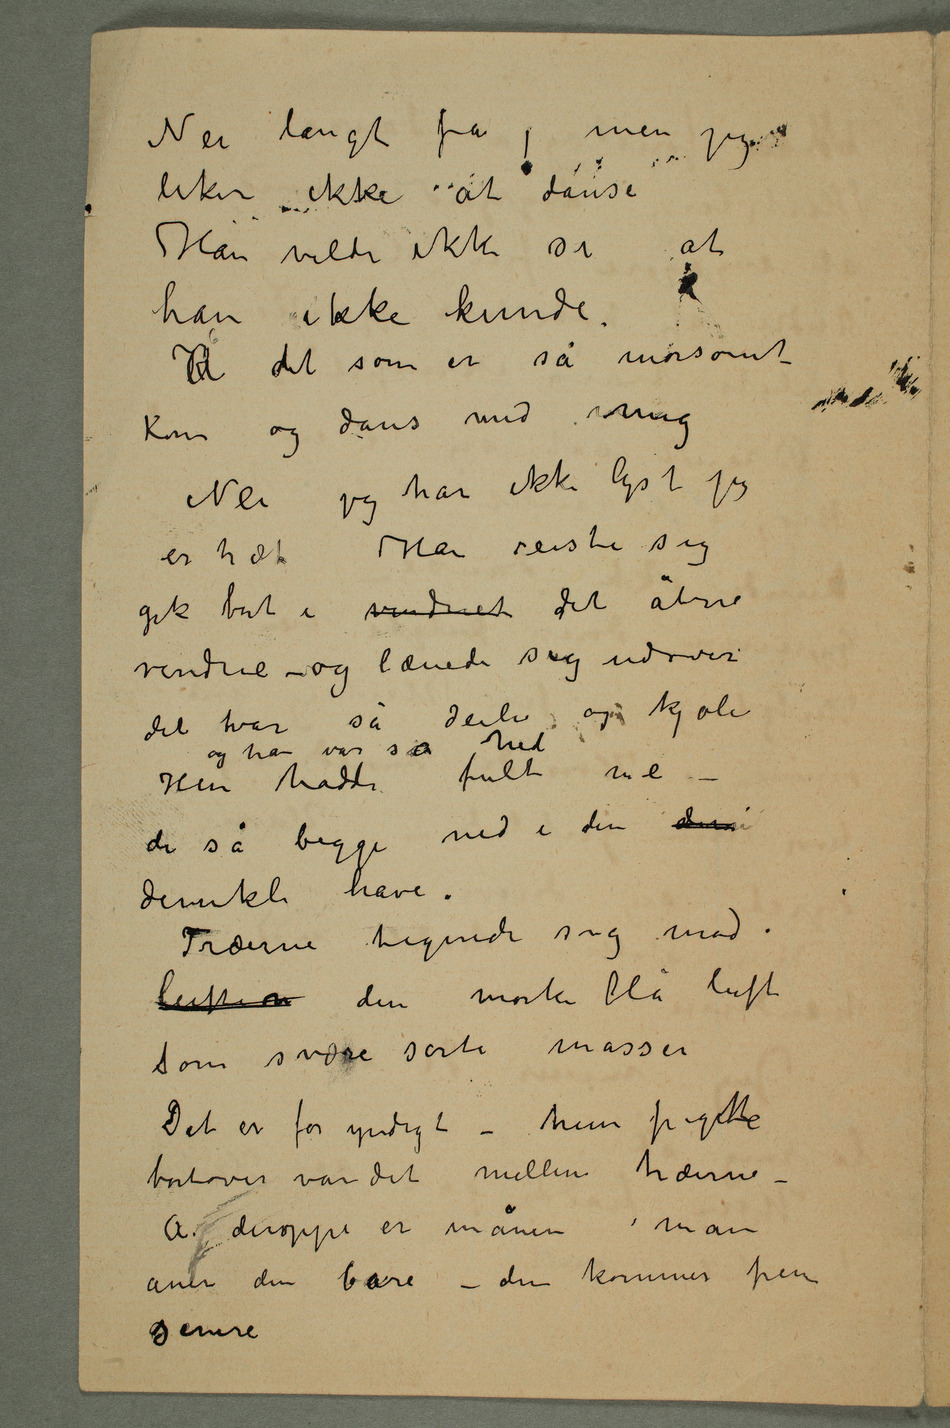 Nei langt fra, men jeg
liker ikke at danse
Han vilde ikke si at
han ikke kunde.
Å det som er så morsomt –
Kom og dans med mig
Nei jeg har ikke lyst jeg
er træt Han reiste sig
gik bort i vinduet det åbne
vindue – og lænede sig udover
det var så deili og kjøli
og han var så hed
Hun hadde fult me –
de så begge ned i den den
dunkle have.
Træerne tegnede sig mod
luften den mørke blå luft
som svære sorte masser
Det er for yndigt – hun pegte
bortover vandet mellem træerne –
A. deroppe er månen man
aner den bare – den kommer frem
senere